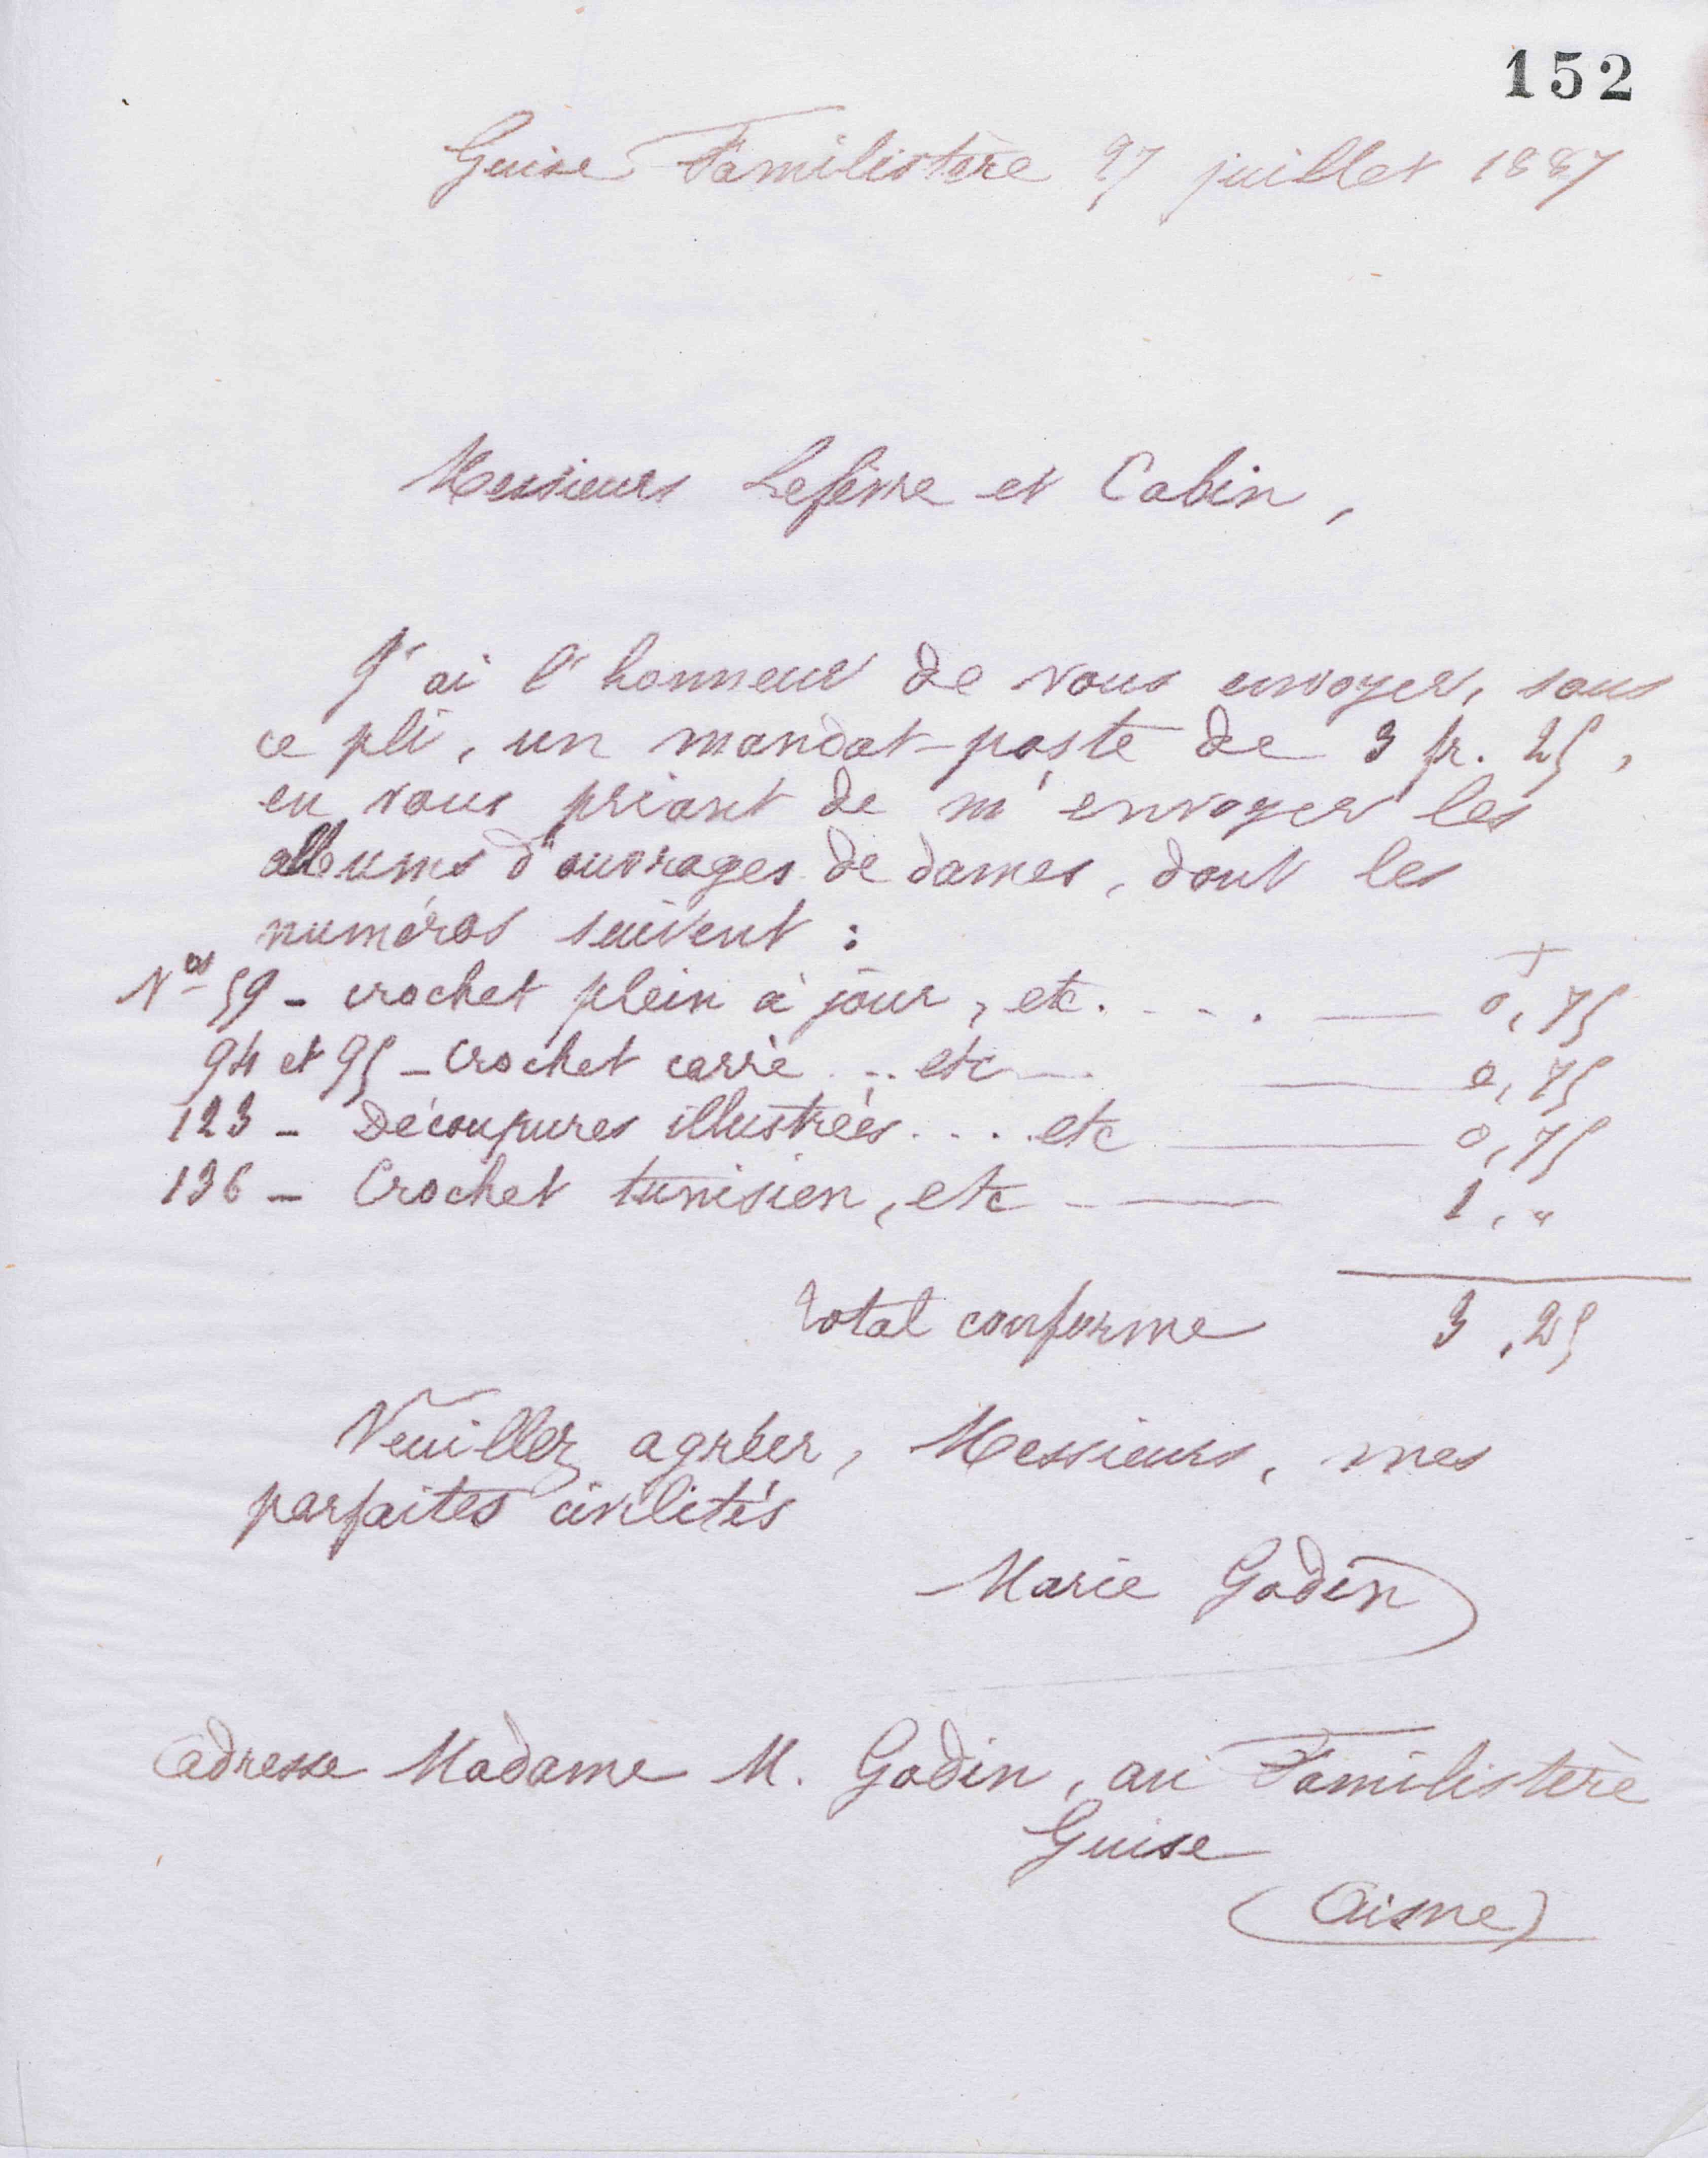 152
Guise Familistère 27 juillet 1887
Messieurs Lefèvre et Cabin,
J'ai l'honneur de vous envoyer, sous
ce pli, un mandat-poste de 3 fr. 25,
en vous priant de m'envoyer les
albums d'ouvrages de dames, dont les
numéros suivent :
Nos 59 - crochet plein à jour, etc. - - . — 0,75
94 et 95 - Crochet carré ... etc — 0,75
123 - Découpures illustrées .... etc — 0,75
136 - Crochet tunisien, etc — 1, "
total conforme 3,25
Veuillez agréer, Messieurs, mes
parfaites civilités
Marie Godin
Adresse Madame M. Godin, au Familistère
Guise
(Aisne)